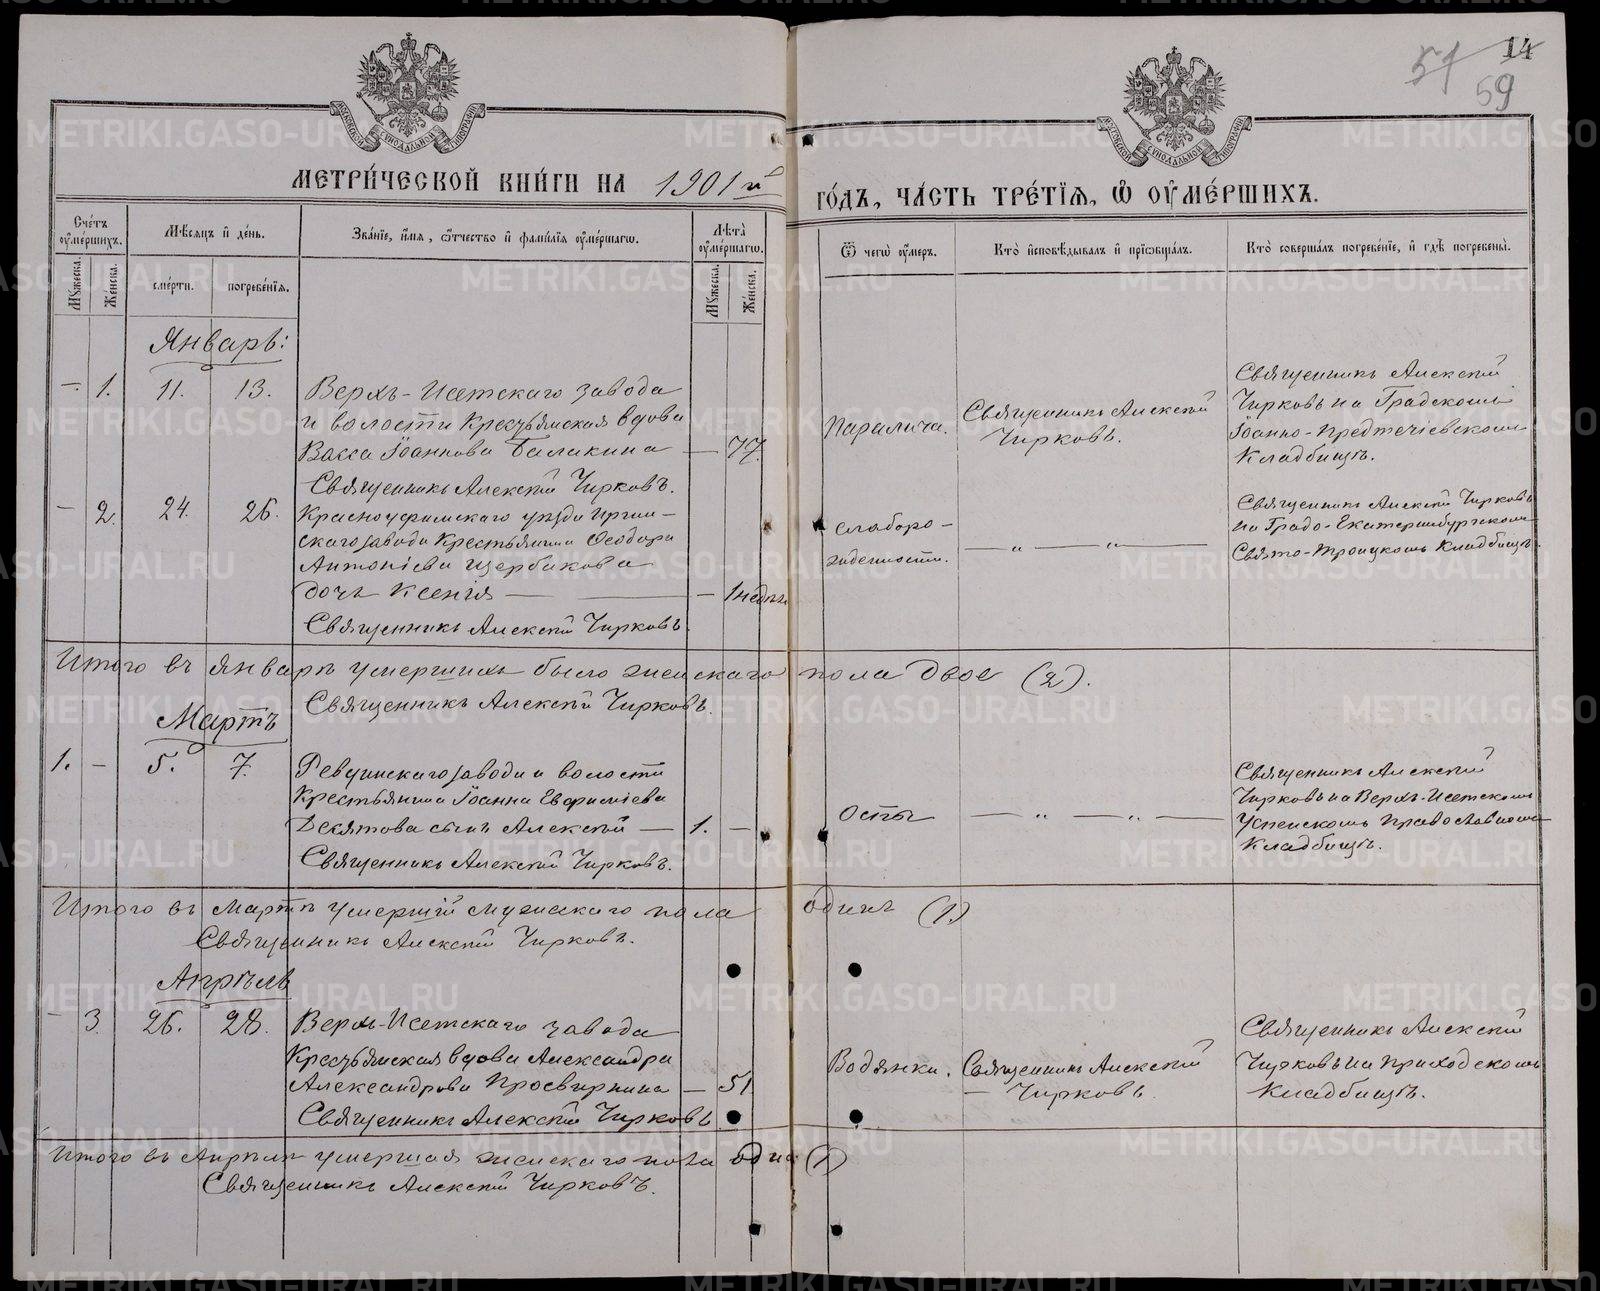 14
57
59
МОСКОВСКОЙ СѴНОДАЛЬНОЙ ТИПОГРАФІИ
МОСКОВСКОЙ СѴНОДАЛЬНОЙ ТИПОГРАФІИ
МЕТРИ́ЧЕСКОЙ КНИ́ГИ НА 1901 й
ГО́ДЪ, ЧА́СТЬ ТРЕ́ТІЯ, Ѡ҆ ОУ҆МЕ́РШИХЪ.
Сче́тъ оу҆ме́ршихъ.
Мѣ́сяцъ и҆ де́нь.
Зва́нїе, и҆́мя, ѻ҆́тчество и҆ фами́лїя оу҆ме́ршагѡ.
Лѣ́та оу҆ме́ршагѡ.
Ѿ чегѡ̀ оу҆́меръ.
Кто̀ и҆сповѣ́дывалъ и҆ прїѡбща́лъ.
Кто̀ соверша́лъ погребе́нїе, и҆ гдѣ̀ погребены̀.
Му́жеска.
Же́нска.
сме́рти.
погребе́нїя.
Му́жеска.
Же́нска.
Январь:
— 1. 11. 13. Верхъ-Исетскаго завода
и волости Крестьянская вдова
Васса Іоаннова Балакина — 77.
Священникъ Алексій Чирковъ.
Паралича.
Священникъ Алексій
Чирковъ.
Священникъ Алексій
Чирковъ на Градскомъ
Іоанно-Предтечіевскомъ
Кладбищѣ.
— 2. 24. 26. Красноуфимскаго уѣзда Иргин-
скаго завода Крестьянина Ѳеодора
Антоніева Щербакова
дочь Ксенія — — — 1 недѣли
Священникъ Алексій Чирковъ.
слаборо-
жденности.
— „ — „ —
Священникъ Алексій Чирковъ
на Градо-Екатеринбургскомъ
Свято-Троицкомъ Кладбищѣ.
Итого въ Январѣ умершихъ было женскаго пола двое (2).
Священникъ Алексій Чирковъ.
Мартъ
1. — 5. 7. Ревдинскаго завода и волости
Крестьянина Іоанна Евфиміева
Десятова сынъ Алексій — 1. —
Священникъ Алексій Чирковъ.
Оспы
— „ — „ —
Священникъ Алексій
Чирковъ на Верхъ-Исетскомъ
Успенскомъ Православномъ
Кладбищѣ.
Итого въ Мартѣ умершій мужескаго пола одинъ (1)
Священникъ Алексій Чирковъ.
Апрѣль
— 3. 26. 28. Верхъ-Исетскаго завода
Крестьянская вдова Александра
Александрова Просвирнина — 51.
Священникъ Алексій Чирковъ
Водянки.
Священникъ Алексій
— Чирковъ.
Священникъ Алексій
Чирковъ на Приходскомъ
Кладбищѣ.
Итого въ Апрѣлѣ умершая женскаго пола одна (1)
Священникъ Алексій Чирковъ.
METRIKI.GASO-URAL.RU